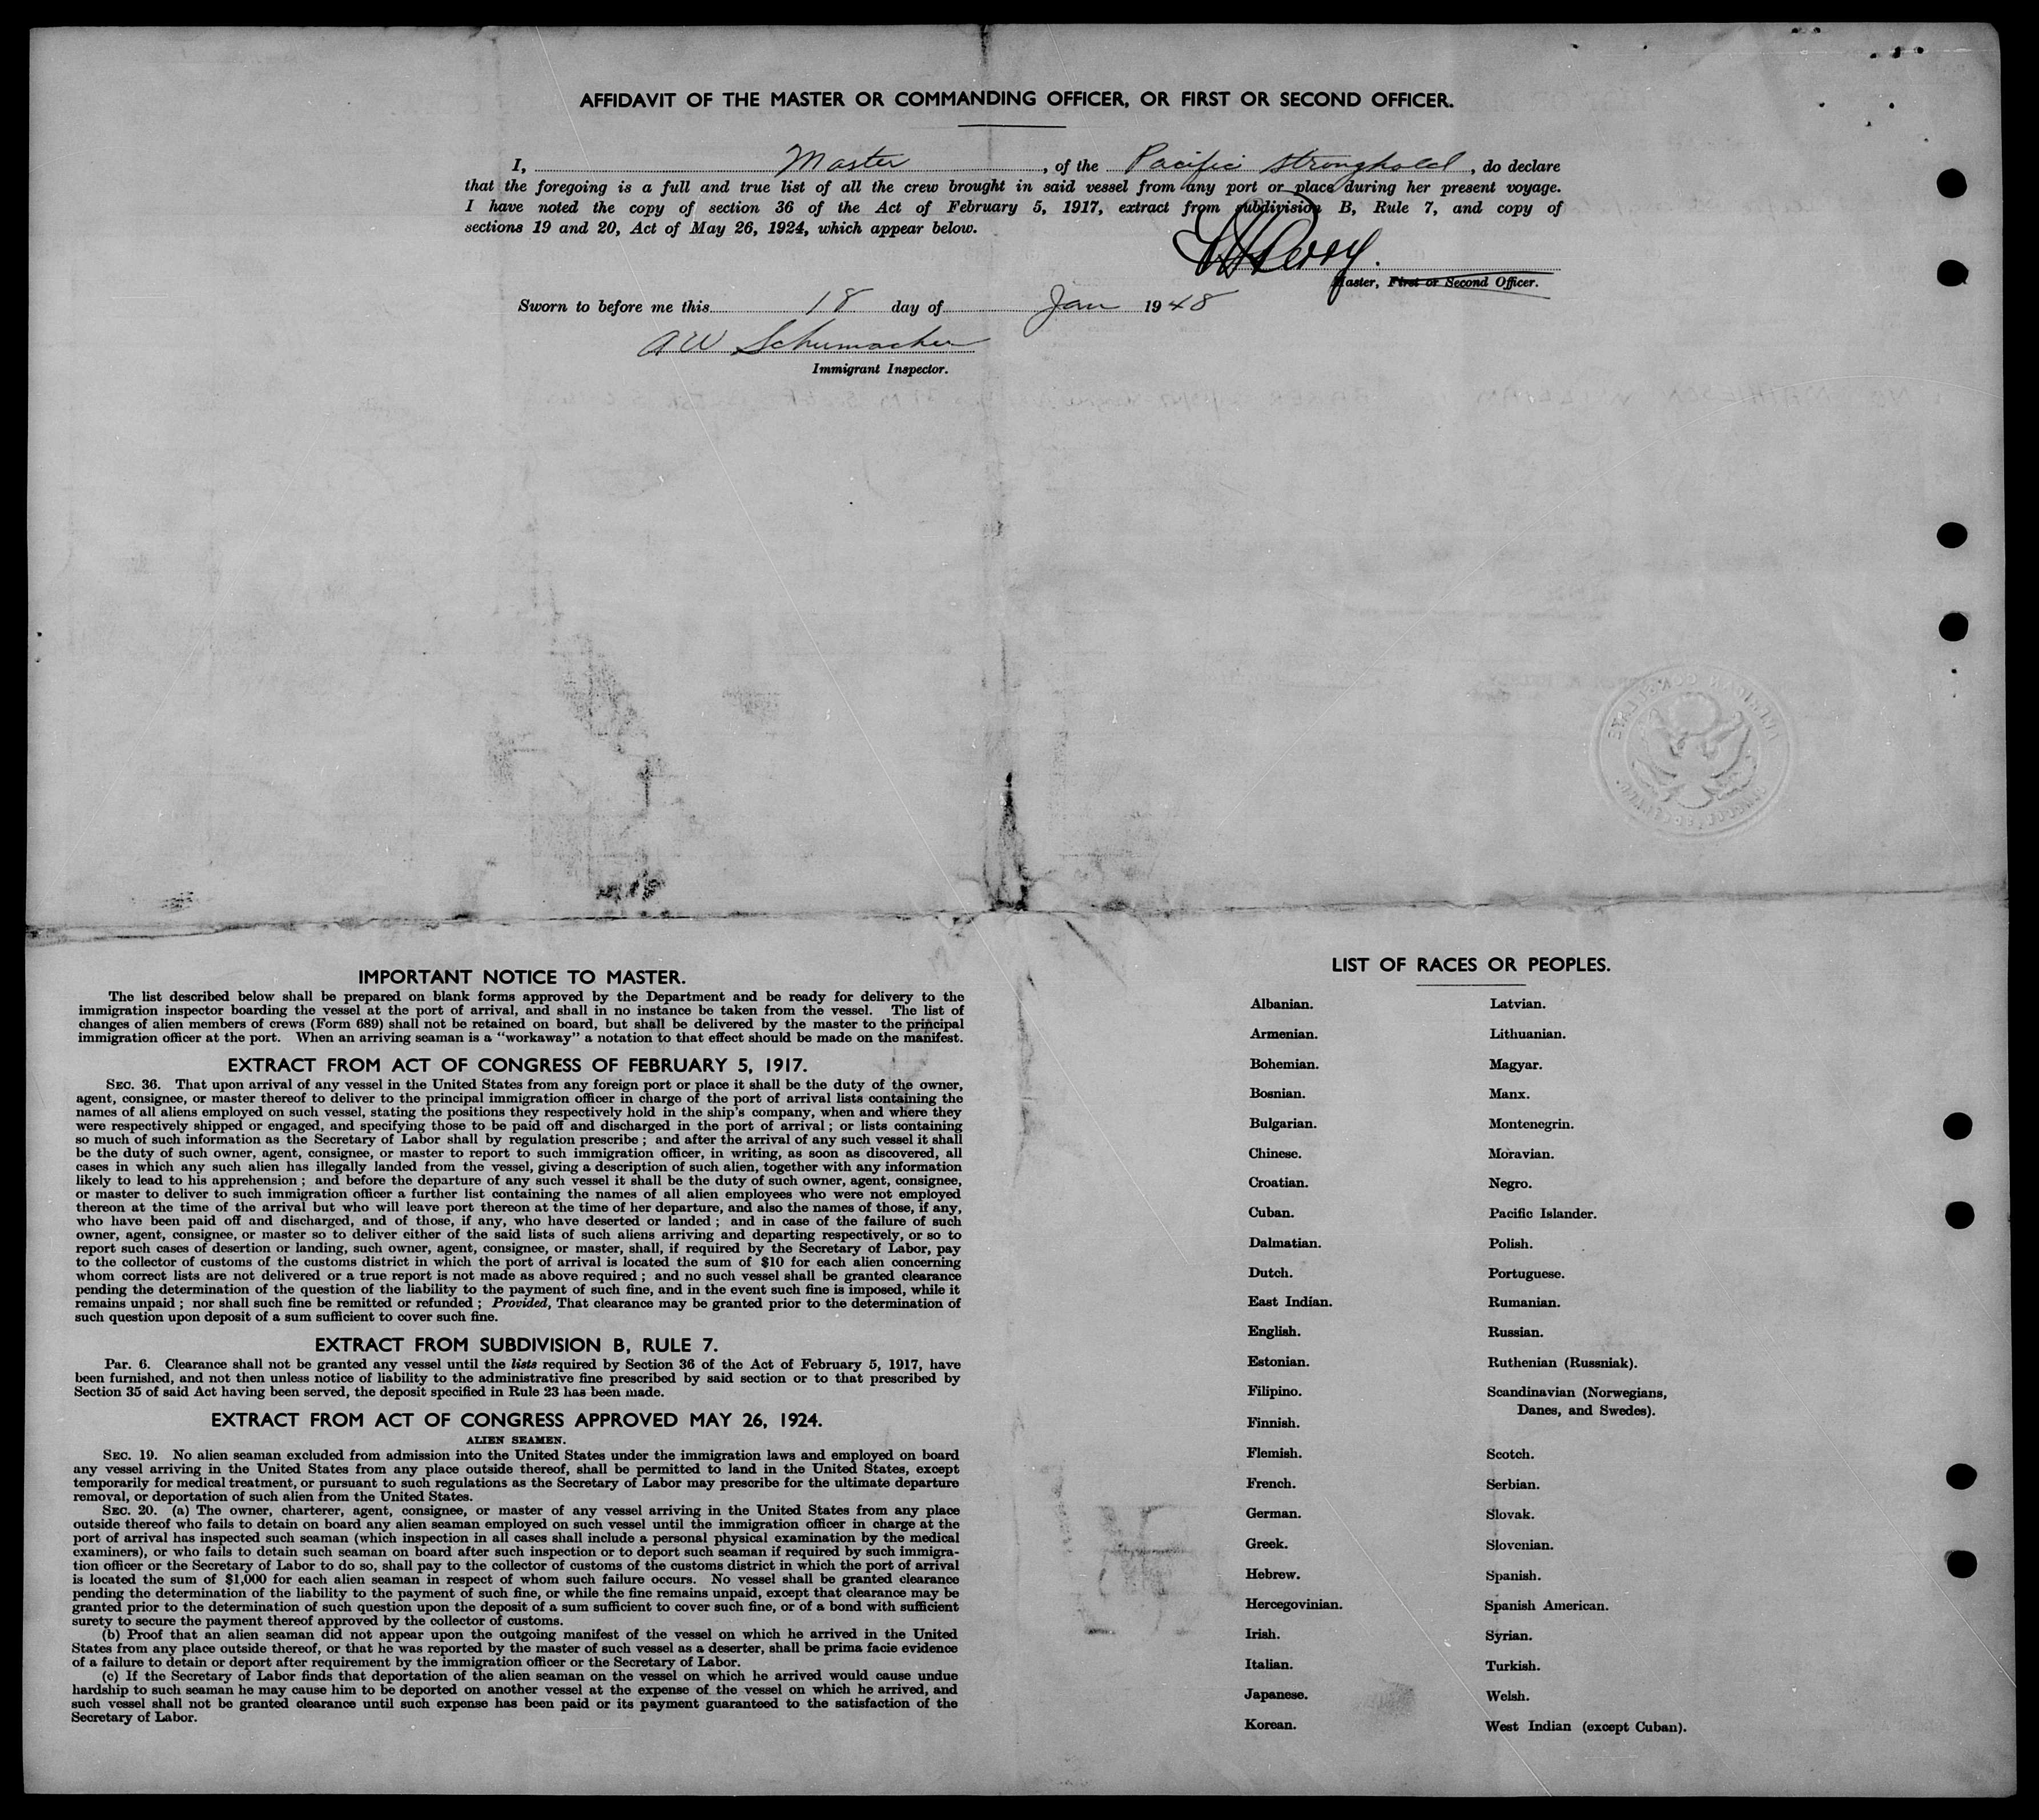 AFFIDAVIT OF THE MASTER OR COMMANDING OFFICER, OR FIRST OR SECOND OFFICER.
I, Master, of the Pacific Stronghold, do declare
that the foregoing is a full and true list of all the crew brought in said vessel from any port or place during her present voyage.
I have noted the copy of section 36 of the Act of February 5, 1917, extract from subdivision B, Rule 7, and copy of
sections 19 and 20, Act of May 26, 1924, which appear below.
Master, First or Second Officer.
Sworn to before me this 18 day of Jan 1948
A W Schumacher
Immigrant Inspector.
IMPORTANT NOTICE TO MASTER.
The list described below shall be prepared on blank forms approved by the Department and be ready for delivery to the
immigration inspector boarding the vessel at the port of arrival, and shall in no instance be taken from the vessel. The list of
changes of alien members of crews (Form 689) shall not be retained on board, but shall be delivered by the master to the principal
immigration officer at the port. When an arriving seaman is a "workaway" a notation to that effect should be made on the manifest.
EXTRACT FROM ACT OF CONGRESS OF FEBRUARY 5, 1917.
SEC. 36. That upon arrival of any vessel in the United States from any foreign port or place it shall be the duty of the owner,
agent, consignee, or master thereof to deliver to the principal immigration officer in charge of the port of arrival lists containing the
names of all aliens employed on such vessel, stating the positions they respectively hold in the ship's company, when and where they
were respectively shipped or engaged, and specifying those to be paid off and discharged in the port of arrival ; or lists containing
so much of such information as the Secretary of Labor shall by regulation prescribe ; and after the arrival of any such vessel it shall
be the duty of such owner, agent, consignee, or master to report to such immigration officer, in writing, as soon as discovered, all
cases in which any such alien has illegally landed from the vessel, giving a description of such alien, together with any information
likely to lead to his apprehension ; and before the departure of any such vessel it shall be the duty of such owner, agent, consignee,
or master to deliver to such immigration officer a further list containing the names of all alien employees who were not employed
thereon at the time of the arrival but who will leave port thereon at the time of her departure, and also the names of those, if any,
who have been paid off and discharged, and of those, if any, who have deserted or landed ; and in case of the failure of such
owner, agent, consignee, or master so to deliver either of the said lists of such aliens arriving and departing respectively, or so to
report such cases of desertion or landing, such owner, agent, consignee, or master, shall, if required by the Secretary of Labor, pay
to the collector of customs of the customs district in which the port of arrival is located the sum of $10 for each alien concerning
whom correct lists are not delivered or a true report is not made as above required ; and no such vessel shall be granted clearance
pending the determination of the question of the liability to the payment of such fine, and in the event such fine is imposed, while it
remains unpaid ; nor shall such fine be remitted or refunded ; Provided, That clearance may be granted prior to the determination of
such question upon deposit of a sum sufficient to cover such fine.
EXTRACT FROM SUBDIVISION B, RULE 7.
Par. 6. Clearance shall not be granted any vessel until the lists required by Section 36 of the Act of February 5, 1917, have
been furnished, and not then unless notice of liability to the administrative fine prescribed by said section or to that prescribed by
Section 35 of said Act having been served, the deposit specified in Rule 23 has been made.
EXTRACT FROM ACT OF CONGRESS APPROVED MAY 26, 1924.
ALIEN SEAMEN.
SEC. 19. No alien seaman excluded from admission into the United States under the immigration laws and employed on board
any vessel arriving in the United States from any place outside thereof, shall be permitted to land in the United States, except
temporarily for medical treatment, or pursuant to such regulations as the Secretary of Labor may prescribe for the ultimate departure
removal, or deportation of such alien from the United States.
SEC. 20. (a) The owner, charterer, agent, consignee, or master of any vessel arriving in the United States from any place
outside thereof who fails to detain on board any alien seaman employed on such vessel until the immigration officer in charge at the
port of arrival has inspected such seaman (which inspection in all cases shall include a personal physical examination by the medical
examiners), or who fails to detain such seaman on board after such inspection or to deport such seaman if required by such immigra-
tion officer or the Secretary of Labor to do so, shall pay to the collector of customs of the customs district in which the port of arrival
is located the sum of $1,000 for each alien seaman in respect of whom such failure occurs. No vessel shall be granted clearance
pending the determination of the liability to the payment of such fine, or while the fine remains unpaid, except that clearance may be
granted prior to the determination of such question upon the deposit of a sum sufficient to cover such fine, or of a bond with sufficient
surety to secure the payment thereof approved by the collector of customs.
(b) Proof that an alien seaman did not appear upon the outgoing manifest of the vessel on which he arrived in the United
States from any place outside thereof, or that he was reported by the master of such vessel as a deserter, shall be prima facie evidence
of a failure to detain or deport after requirement by the immigration officer or the Secretary of Labor.
(c) If the Secretary of Labor finds that deportation of the alien seaman on the vessel on which he arrived would cause undue
hardship to such seaman he may cause him to be deported on another vessel at the expense of the vessel on which he arrived, and
such vessel shall not be granted clearance until such expense has been paid or its payment guaranteed to the satisfaction of the
Secretary of Labor.
LIST OF RACES OR PEOPLES.
Albanian.
Armenian.
Bohemian.
Bosnian.
Bulgarian.
Chinese.
Croatian.
Cuban.
Dalmatian.
Dutch.
East Indian.
English.
Estonian.
Filipino.
Finnish.
Flemish.
French.
German.
Greek.
Hebrew.
Hercegovinian.
Irish.
Italian.
Japanese.
Korean.
Latvian.
Lithuanian.
Magyar.
Manx.
Montenegrin.
Moravian.
Negro.
Pacific Islander.
Polish.
Portuguese.
Rumanian.
Russian.
Ruthenian (Russniak).
Scandinavian (Norwegians,
Danes, and Swedes).
Scotch.
Serbian.
Slovak.
Slovenian.
Spanish.
Spanish American.
Syrian.
Turkish.
Welsh.
West Indian (except Cuban).